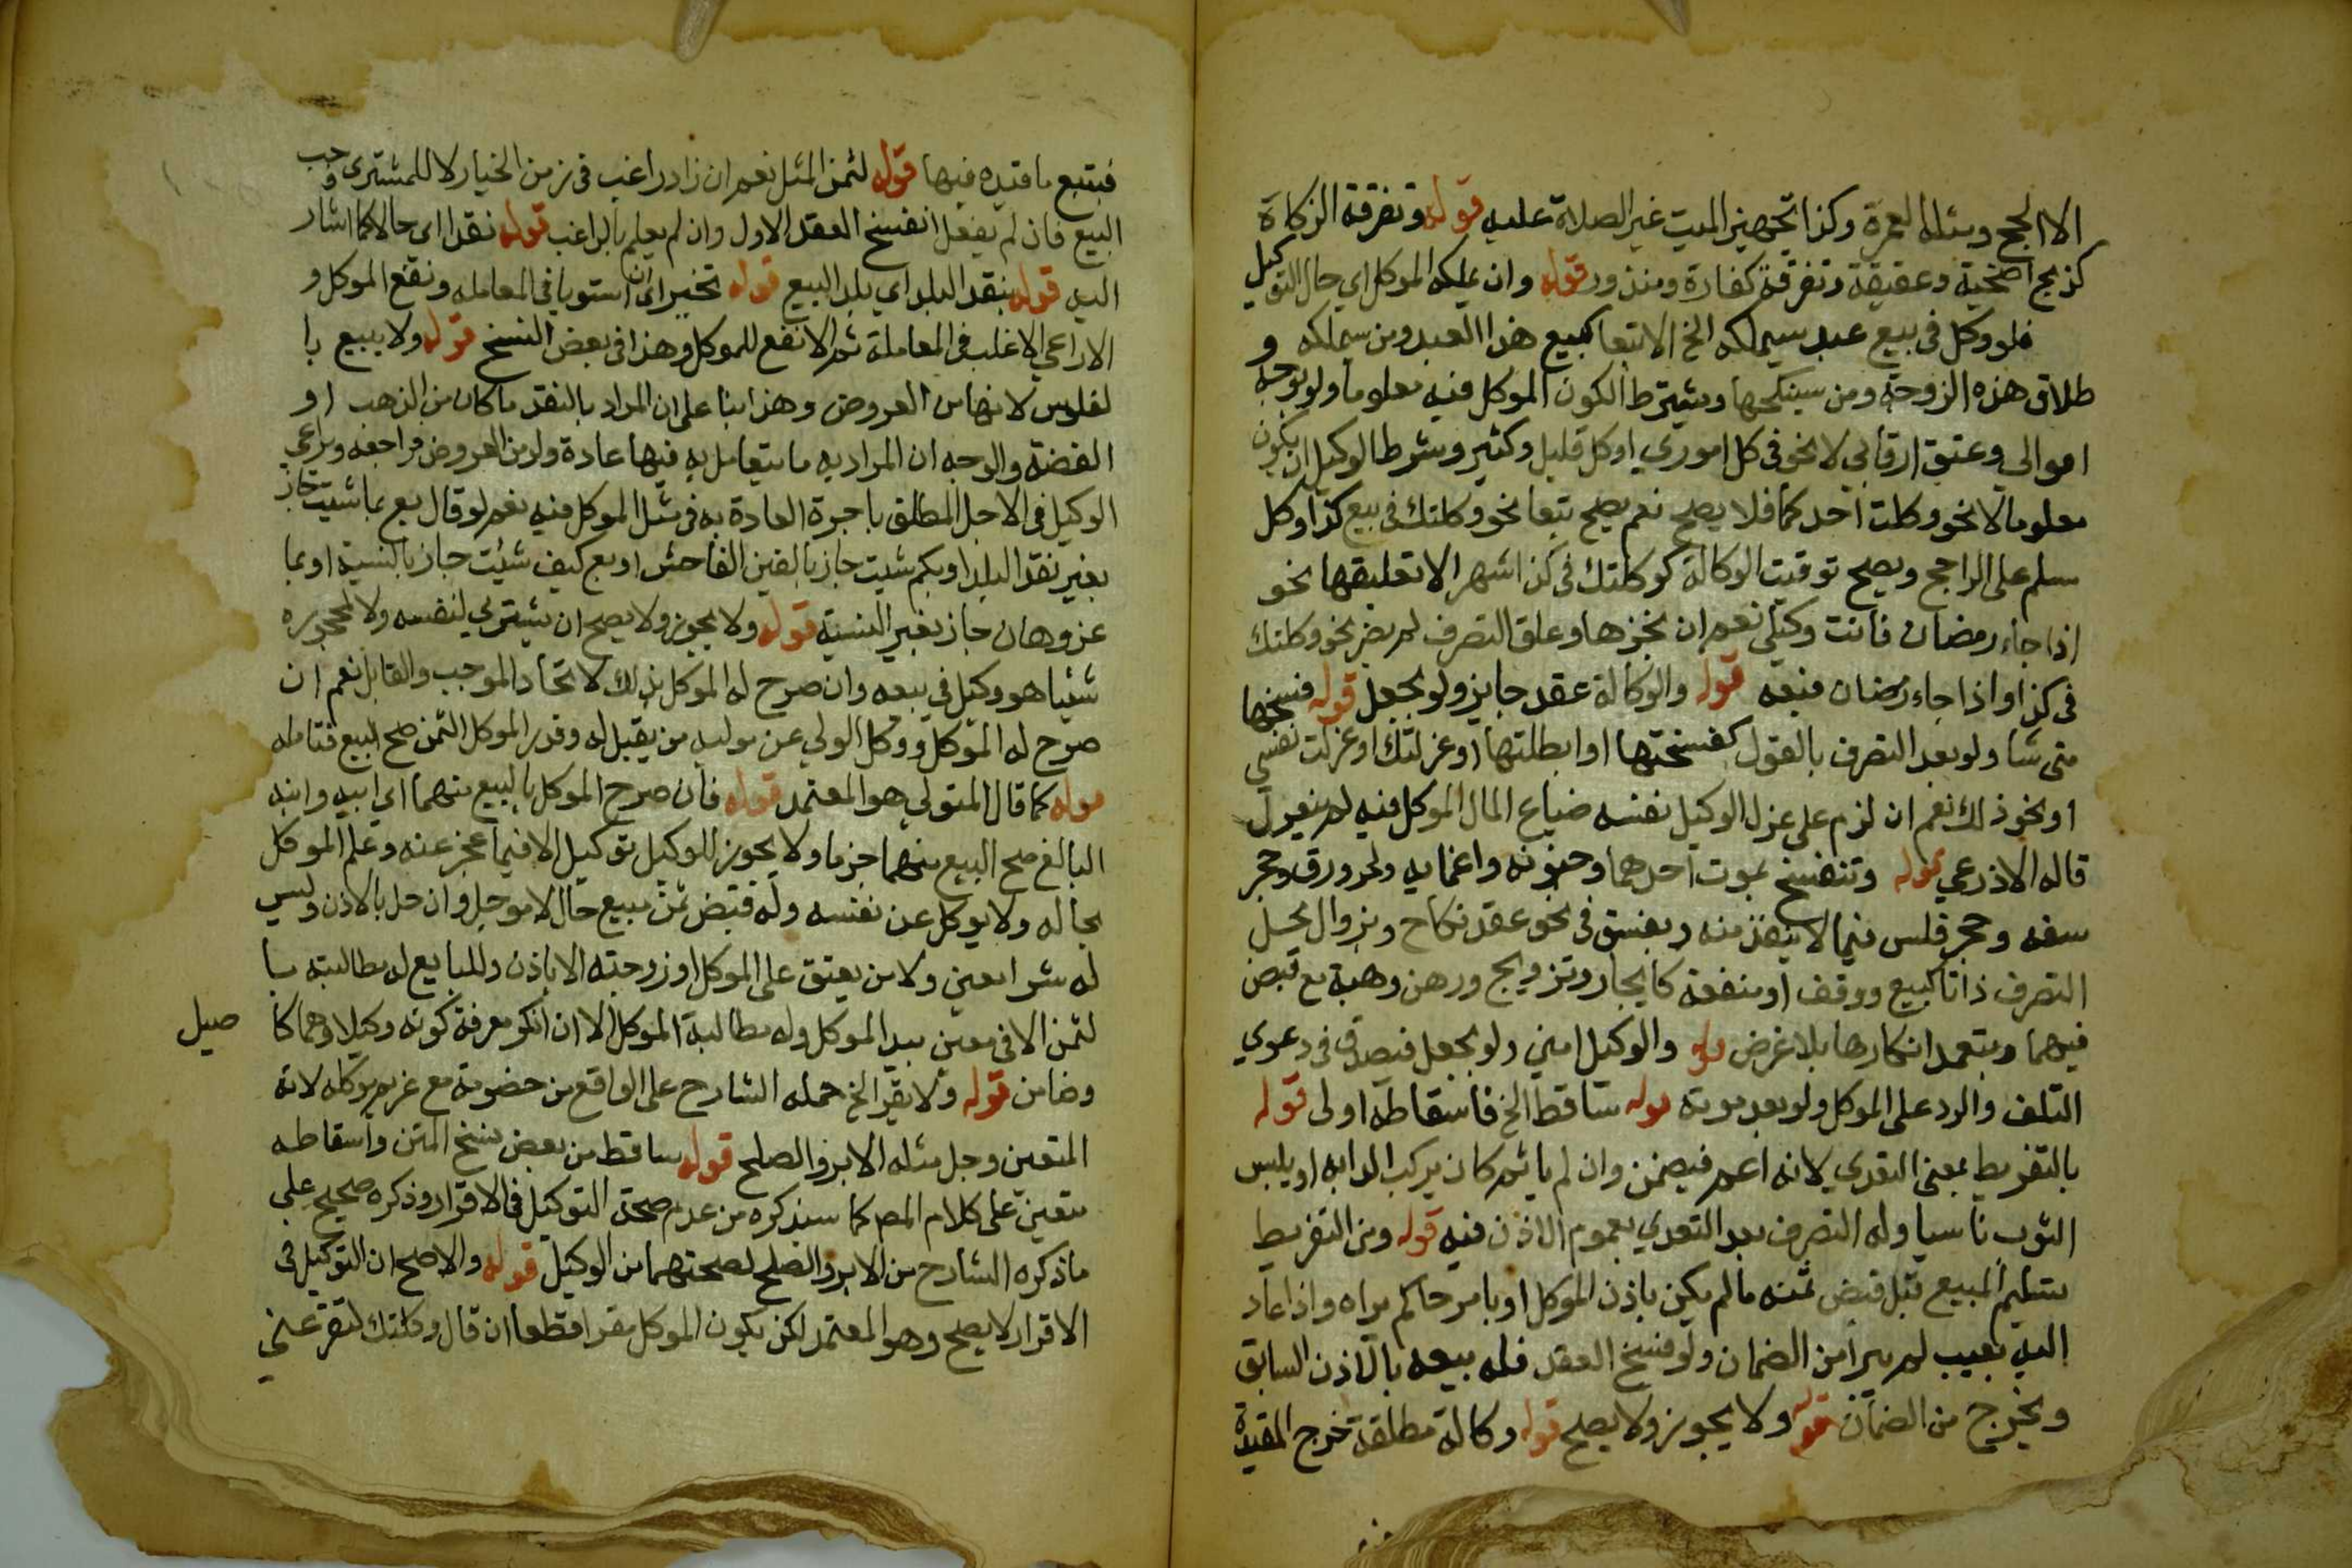 الا الحج ومثله العمرة وكذا تجهيز الميت غير الصلاة عليه قوله وتفرقة الزكاة
كذبح اضحية وعقيقة وتفرقة كفارة ومنذور قوله وان يملكه الموكل اي حال التوكيل
فلو وكل في بيع عبد سيملكه الخ الا تبعا كبيع هذا العبد ومن سيملكه و
طلاق هذه الزوجة ومن سينكحها ويشترط الكون الموكل فيه معلوما ولو بوجه
اموالي وعتق ارقائي لا نحو في كل اموري او كل قليل وكثير وشرط الوكيل ان يكون
معلوما لا نحو وكلت احدكما فلا يصح نعم يصح تبعا نحو وكلتك في بيع كذا وكل
مسلم على الراجح ويصح توقيت الوكالة كوكلتك في كذا شهر الا تعليقها نحو
اذا جاء رمضان فانت وكيلي نعم ان نجزها وعلق التصرف لم يضر نحو وكلتك
في كذا واذا جاء رمضان فبعه قوله والوكالة عقد جايز ولو بجعل قوله فسخها
متى شا ولو بعد التصرف بالقول كفسختها او ابطلتها او عزلتك او عزلت نفسي
او نحو ذلك نعم ان لزم على عزل الوكيل نفسه ضياع المال الموكل فيه لم ينعزل
قاله الاذرعي قوله وتنفسخ بموت احدهما وجنونه واغمايه ولحدورق وحجر
سفه وحجر فلس فيما لا ينفذ منه وبفسق في نحو عقد نكاح وبزوال محل
التصرف ذاتا كبيع ووقف او منفعة كايجار وتزويج ورهن وهبة مع قبض
فيهما وبتعمد انكارها بلا غرض قوله والوكيل امين ولو بجعل فيصدق في دعوي
التلف والرد على الموكل ولو بعد موته قوله ساقط الخ فاسقاطه اولى قوله
بالتفريط بمعنى التعدي لانه اعم فيضمن وان لم ياثم كان يركب الدابه او يلبس
الثوب ناسيا وله التصرف بعد التعدي بعموم الاذن فيه قوله ومن التفريط
تسليم المبيع قبل قبض ثمنه ما لم يكن باذن الموكل او بامر حاكم يراه واذا عاد
اليه بعيب لم يبرا من الضمان ولو فسخ العقد فله بيعه بالاذن السابق
ويخرج من الضمان قوله ولا يجوز ولا يصح قوله وكالة مطلقة تخرج المقيدة
فيتبع ما قيده فيها قوله لثمن المثل نعم ان زاد راغب في زمن الخيار لا للمشترى وجب
البيع فان لم يفعل انفسخ العقد الاول وان لم يعلم بالراغب قوله نقدا اى حالا كما اشار
اليه قوله بنقد البلد اي بلد البيع قوله تخير اى ان استويا في المعامله ونفع الموكل و
الا راعي الاغلب في المعاملة ثم الانفع للموكل وهذا في بعض النسخ قوله ولا يبيع با
لفلوس لانها من العروض وهذا بنا على ان المراد بالنقد ما كان من الذهب او
الفضة والوجه ان المراد به ما يتعامل به فيها عادة ولو من العروض فراجعه ويراعي
الوكيل في الاجل المطلق با جرة العادة به في مثل الموكل فيه نعم لو قال بع بما شيت جاز
بغير نقد البلد او بكم شيت جاز بالغبن الفاحش او بع كيف شئت جاز بالنسية او بما
عز وهان جاز بغير النسية قوله ولا يجوز ولا يصح ان يشتري لنفسه ولا لمحجوره
شيئا هو وكيل في بيعه وان صرح له الموكل بذلك لاتحاد الموجب والقابل نعم ان
صرح له الموكل ووكل الولي عن موليه من يقبل له وقدر الموكل الثمن صح البيع فتامله
قوله كما قال المتولي هو المعتمد قوله فان صرح الموكل بالبيع منهما اي ابيه وابنه
البالغ صح البيع منهما جزما ولا يجوز للوكيل توكيل الا فيما عجز عنه وعلم الموكل
بحاله ولا يوكل عن نفسه وله قبض ثمن مبيع حال لا موجل وان حل بالاذن وليس
له شرا معين ولا من يعتق على الموكل او زوجته الا باذن وللبايع له مطالبته با
لثمن الا في معين بيد الموكل وله مطالبة الموكل الا ان انكر معرفة كونه وكيلا وهما كا
صيل
وضامن قوله ولا يقر الخ حمله الشارح على الواقع من خصومة مع غريم موكله لانه
المتعين وجل مثله الابرا والصلح قوله ساقط من بعض نسخ المتن واسقاطه
متعين على كلام المص كما سيذكره من عدم صحة التوكيل في الاقرار وذكره صحيح على
ما ذكره الشارح من الابرا والصلح لصحتهما من الوكيل قوله والاصح ان التوكيل في
الاقرار لا يصح وهو المعتمد لكن يكون الموكل مقرا قطعا ان قال وكلتك لتقر عني